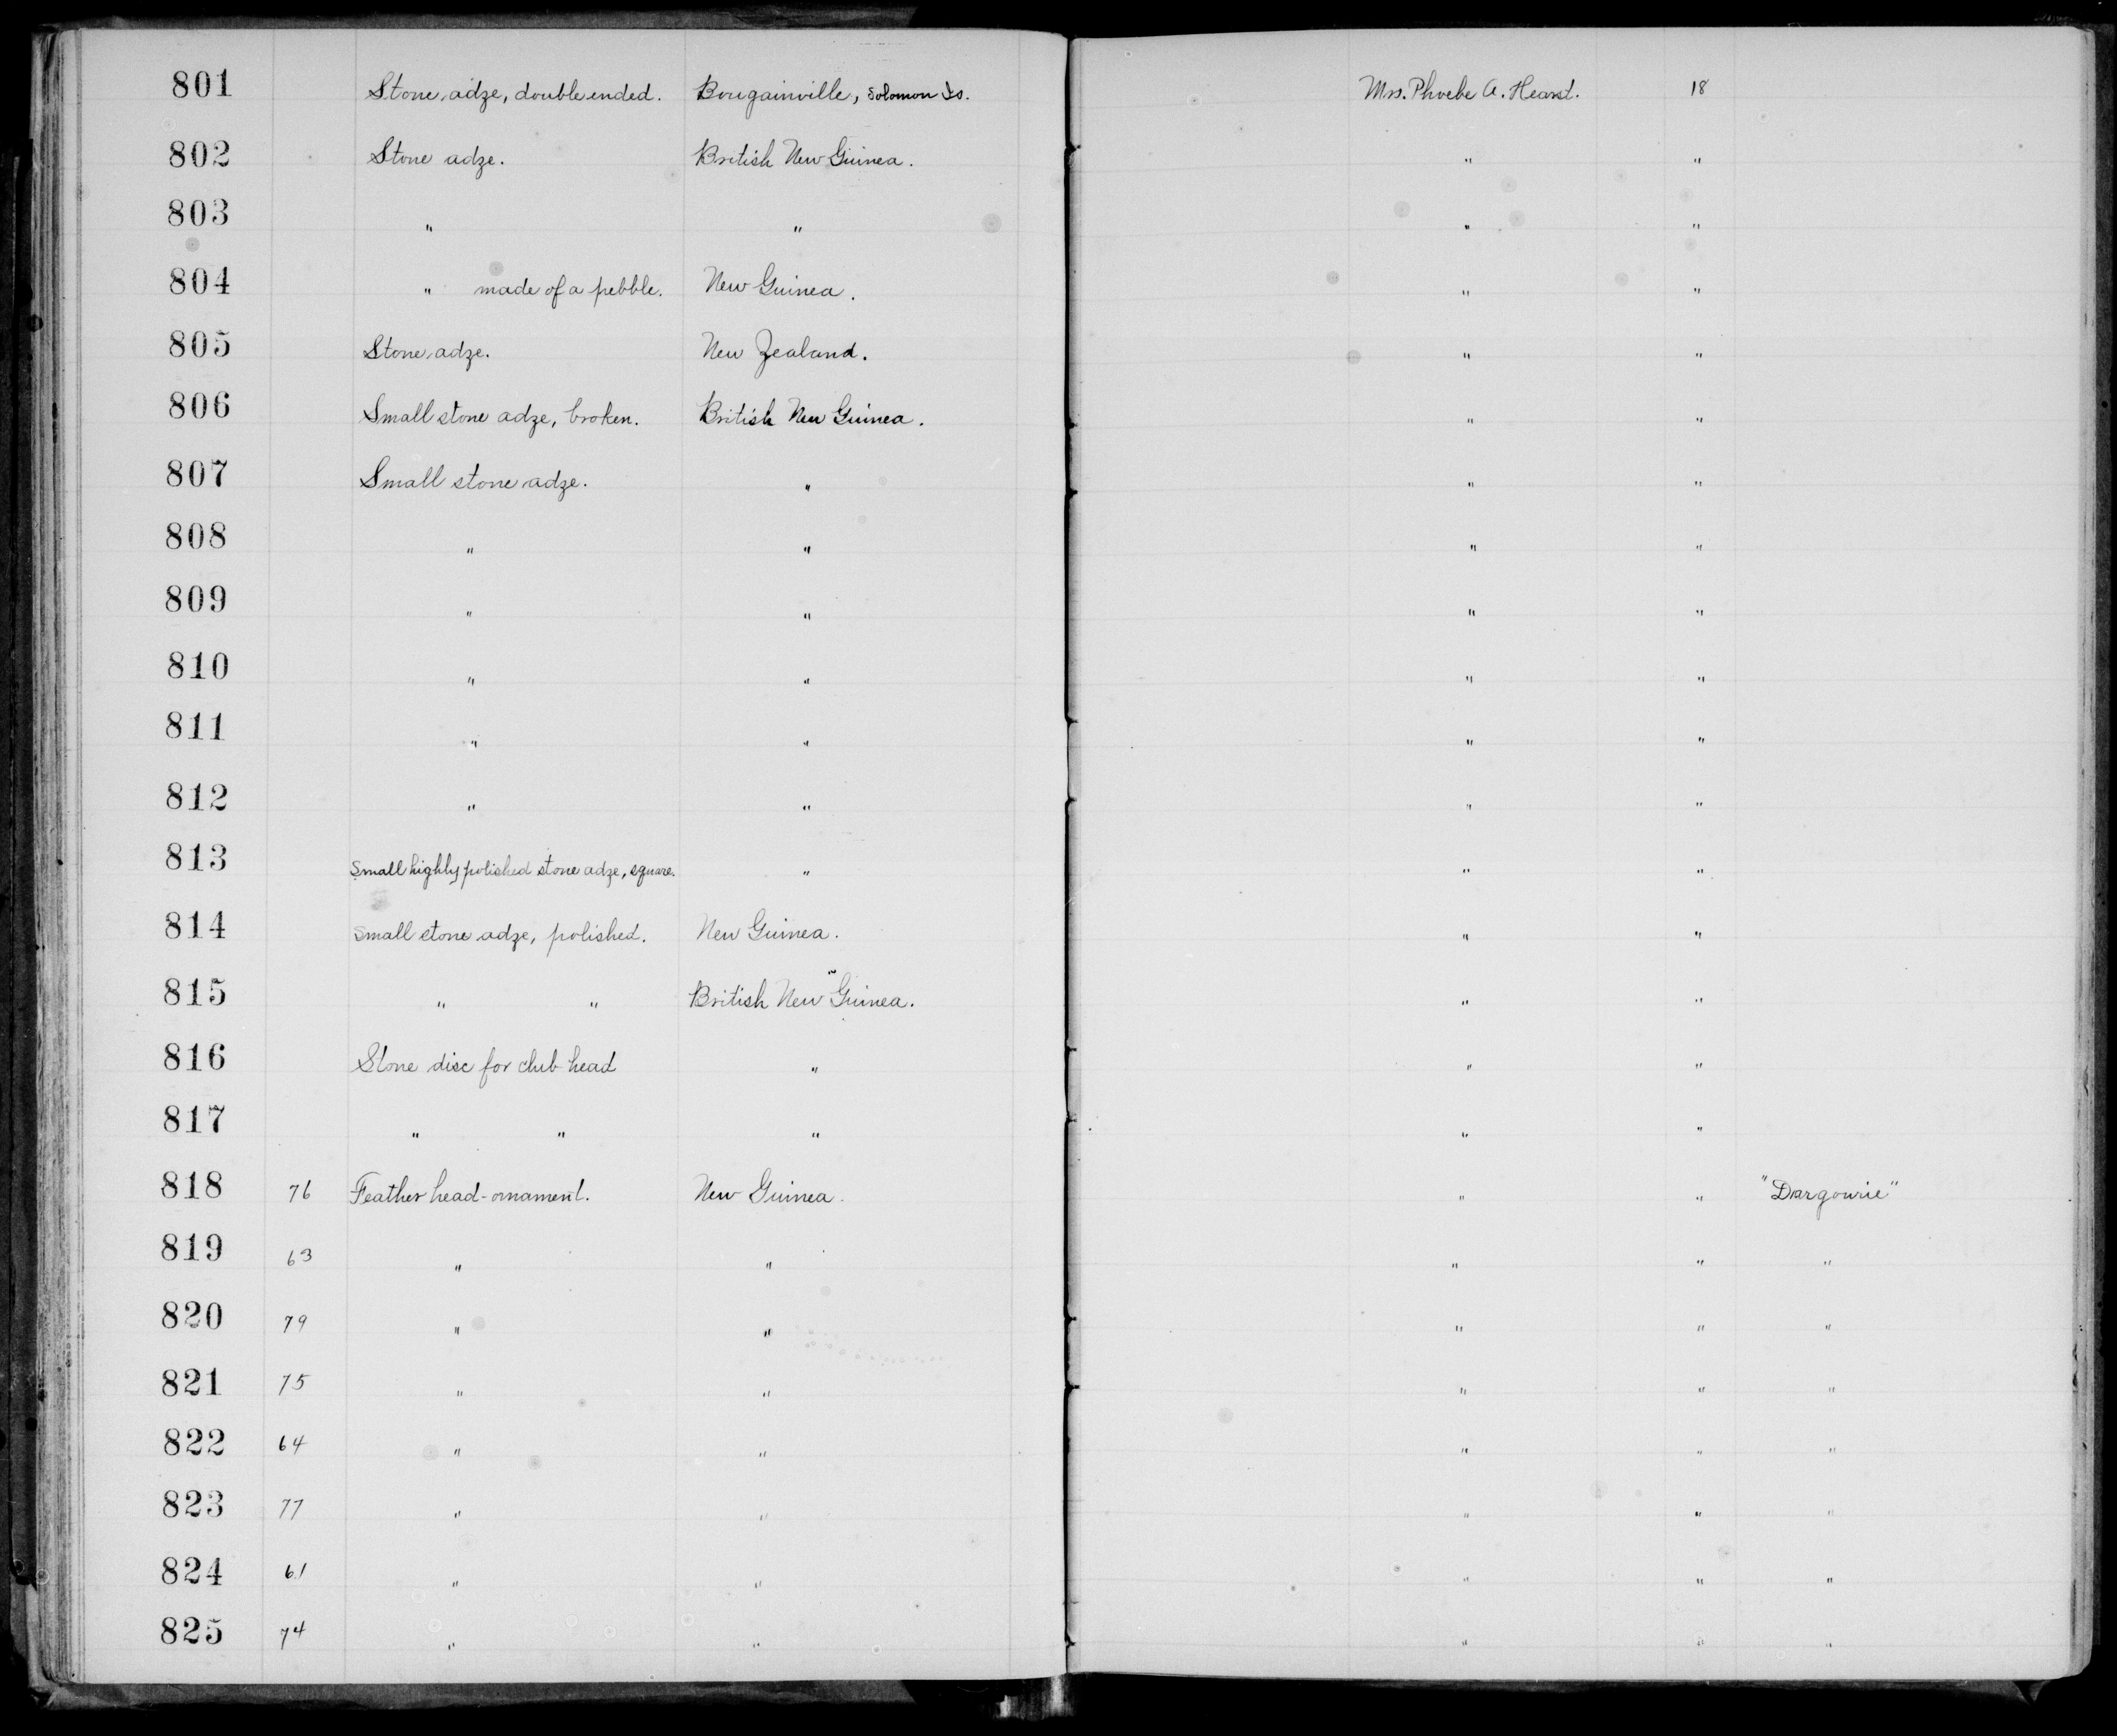 801 Stone adze, double ended. Bougainville, Solomon Is. Mrs. Phoebe A. Hearst. 18
802 Stone adze. British New Guinea. " "
803 " " " "
804 " made of a pebble. New Guinea. " "
805 Stone adze. New Zealand. " "
806 Small stone adze, broken. British New Guinea. " "
807 Small stone adze. " " "
808 " " " "
809 " " " "
810 " " " "
811 " " " "
812 " " " "
813 Small highly polished stone adze, square. " " "
814 Small stone adze, polished. New Guinea. " "
815 " " British New Guinea. " "
816 Stone disc for club head " " "
817 " " " " "
818 76 Feather head-ornament. New Guinea. " " "Dargowie"
819 63 " " " " "
820 79 " " " " "
821 75 " " " " "
822 64 " " " " "
823 77 " " " " "
824 61 " " " " "
825 74 " " " " "